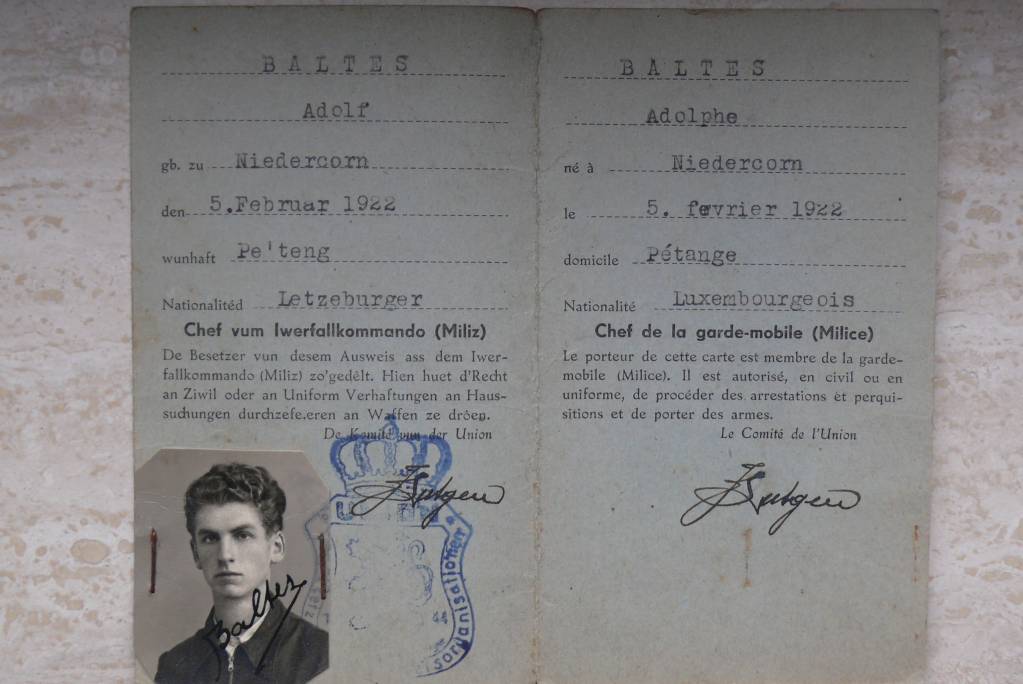 BALTES
Adolf
gb. zu Niedercorn
den 5.Februar 1922
wunhaft Pe'teng
Nationalitéd Letzeburger
Chef vum Iwerfallkommando (Miliz)
De Besetzer vun desem Ausweis ass dem Iwer-
fallkommando (Miliz) zo'gedêlt. Hien huet d'Recht
an Ziwil oder an Uniform Verhaftungen an Haus-
suchungen durchzefe.eren an Waffen ze drôen.
De Komité vun der Union
Baltes
sorganisationen
BALTES
Adolphe
né à Niedercorn
le 5. fevrier 1922
domicile Pétange
Nationalité Luxembourgeois
Chef de la garde-mobile (Milice)
Le porteur de cette carte est membre de la garde-
mobile (Milice). Il est autorisé, en civil ou en
uniforme, de procéder des arrestations et perqui-
sitions et de porter des armes.
Le Comité de l'Union